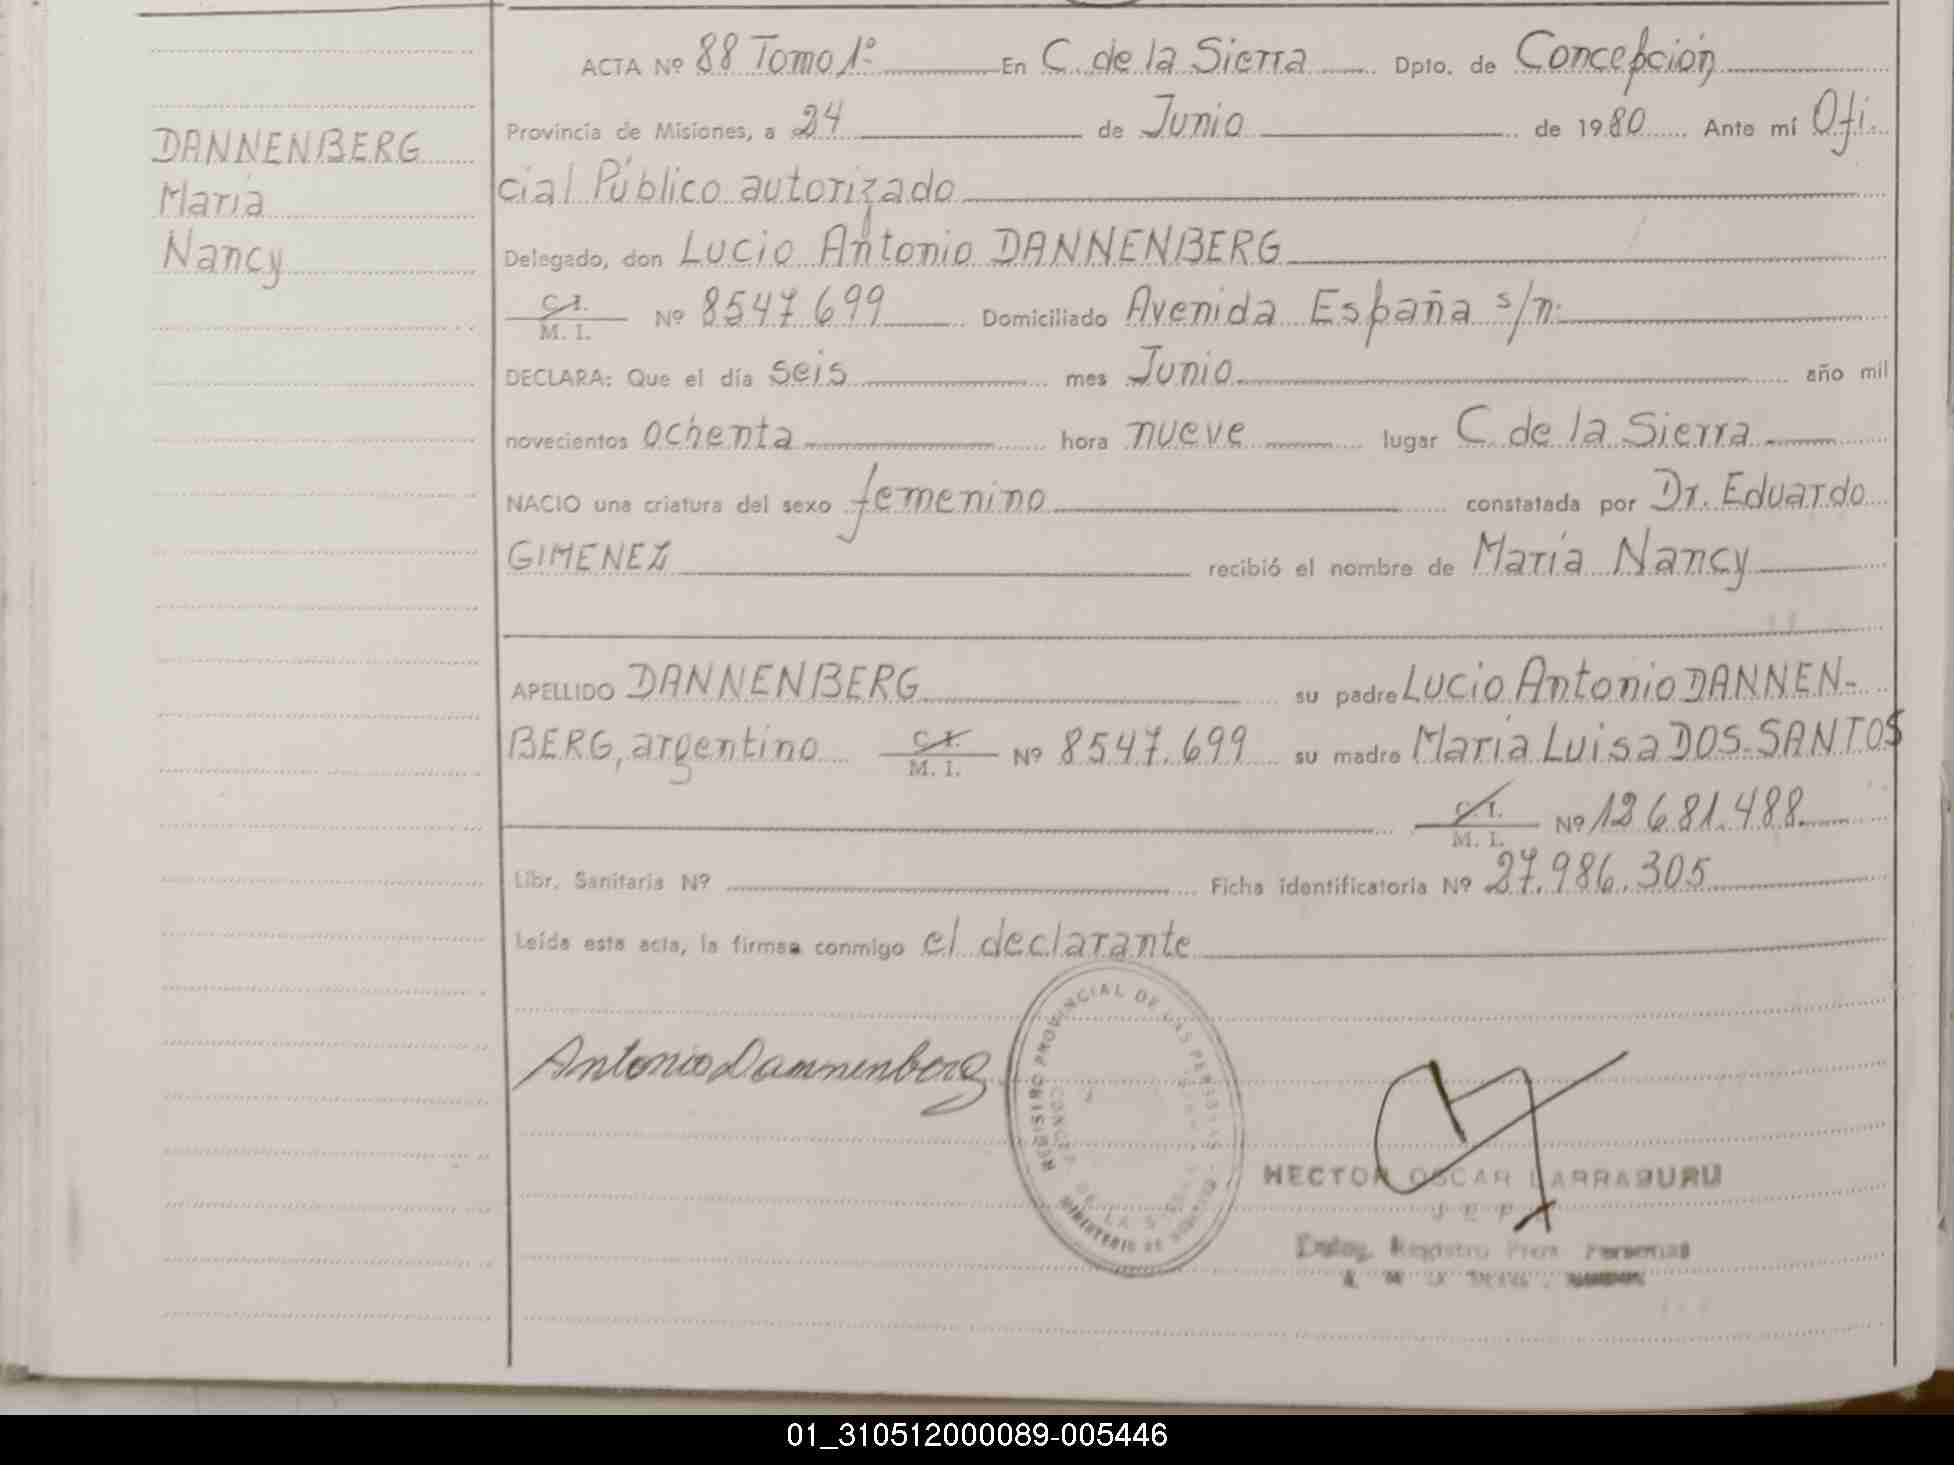 ACTA Nº 88 Tomo 1º En C. de la Sierra Dpto. de Concepción
DANNENBERG
María
Nancy
Provincia de Misiones, a 24 de Junio de 1980 Ante mí Ofi-
cial Público autorizado
Delegado, don Lucio Antonio DANNENBERG
C. I.
M. I. Nº 8547.699 Domiciliado Avenida España s/n.
DECLARA: Que el día seis mes Junio año mil
novecientos ochenta hora nueve lugar C. de la Sierra
NACIO una criatura del sexo femenino constatada por Dr. Eduardo
GIMENEZ recibió el nombre de María Nancy
APELLIDO DANNENBERG su padre Lucio Antonio DANNEN-
BERG, argentino C. I. M. I. Nº 8547.699 su madre María Luisa DOS-SANTOS
C. I.
M. I. Nº 12.681.488.
Libr. Sanitaria Nº Ficha identificatoria Nº 27.986.305
Leída esta acta, la firma conmigo el declarante
Antonio Dannenberg
REGISTRO PROVINCIAL DE LAS PERSONAS
CONCEP. DE LA SIERRA
MINISTERIO DE
HECTOR OSCAR LARRABURU
JEFE
Registro Prov. Personas
01_310512000089-005446